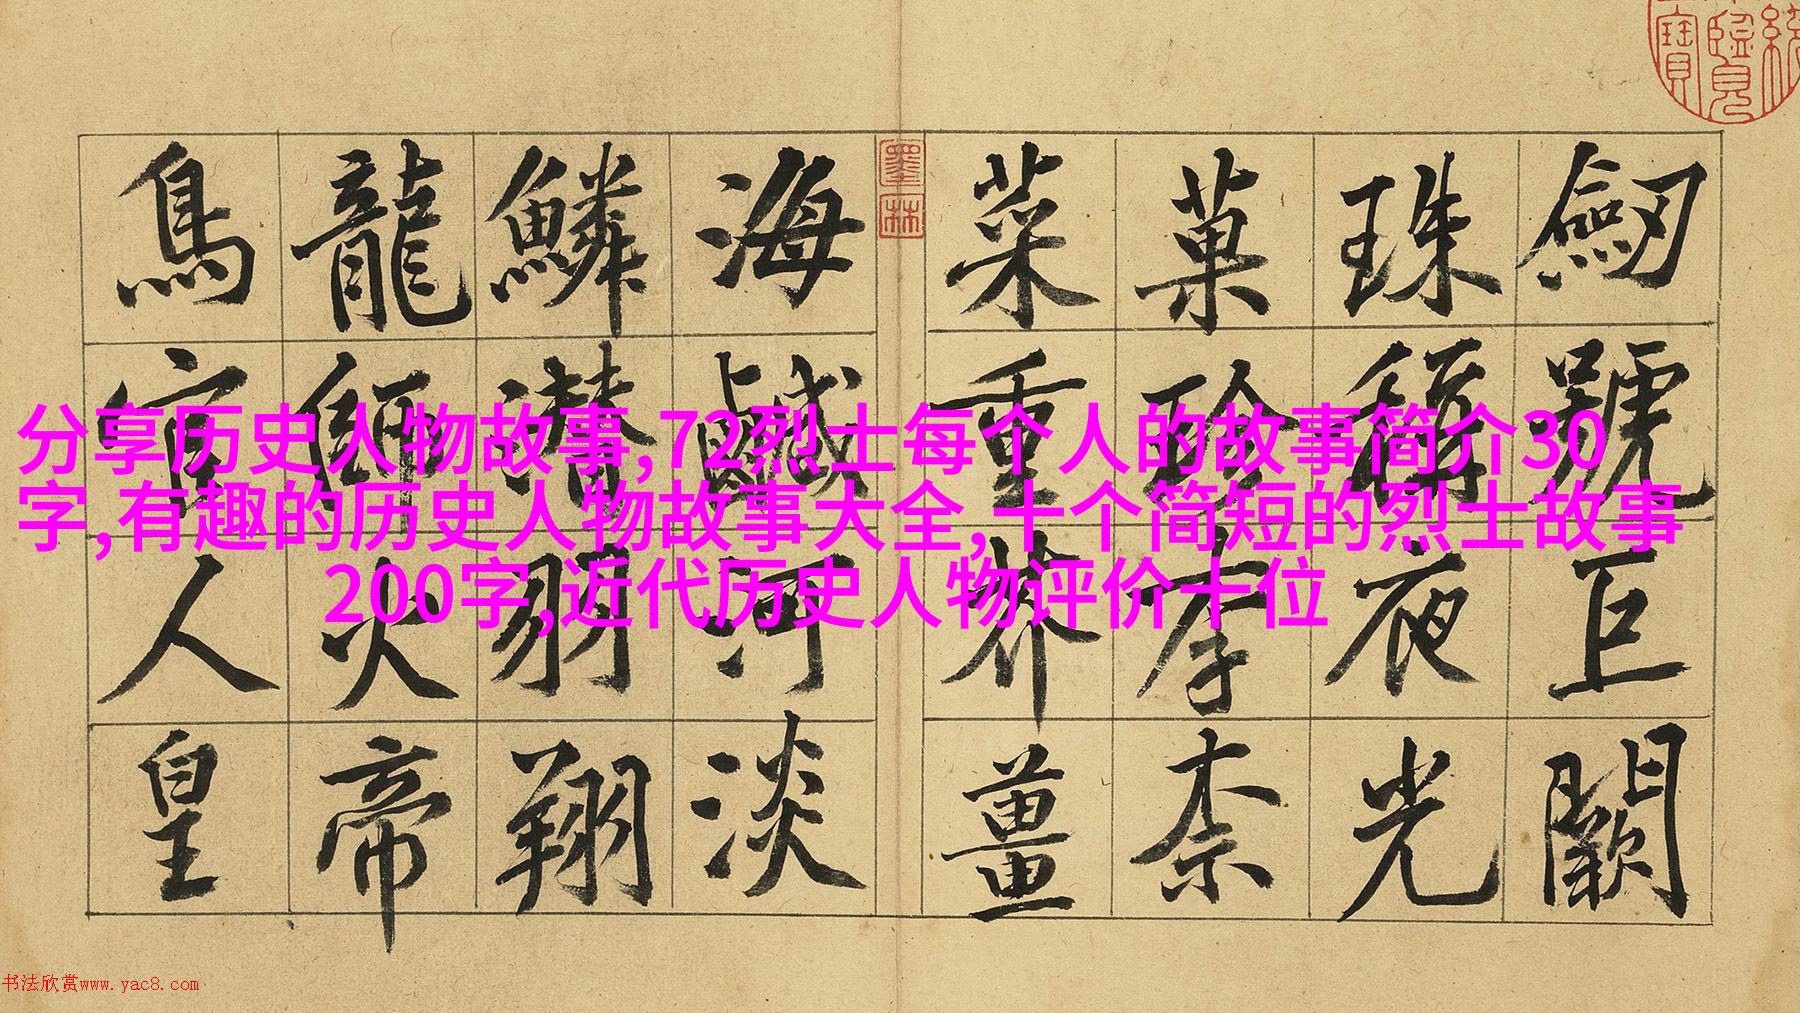 分享历史人物故事,72烈士每个人的故事简介30
字,有趣的历史人物故事大全,十个简短的烈士故事
200字,近代历史人物评价十位
劒號巨闕
珠稱夜光
菓珍李柰
菜重芥薑
墨林
海鹹河淡
鱗潛羽翔
龍師火帝
鳥官人皇
书法欣赏www.yac8.com